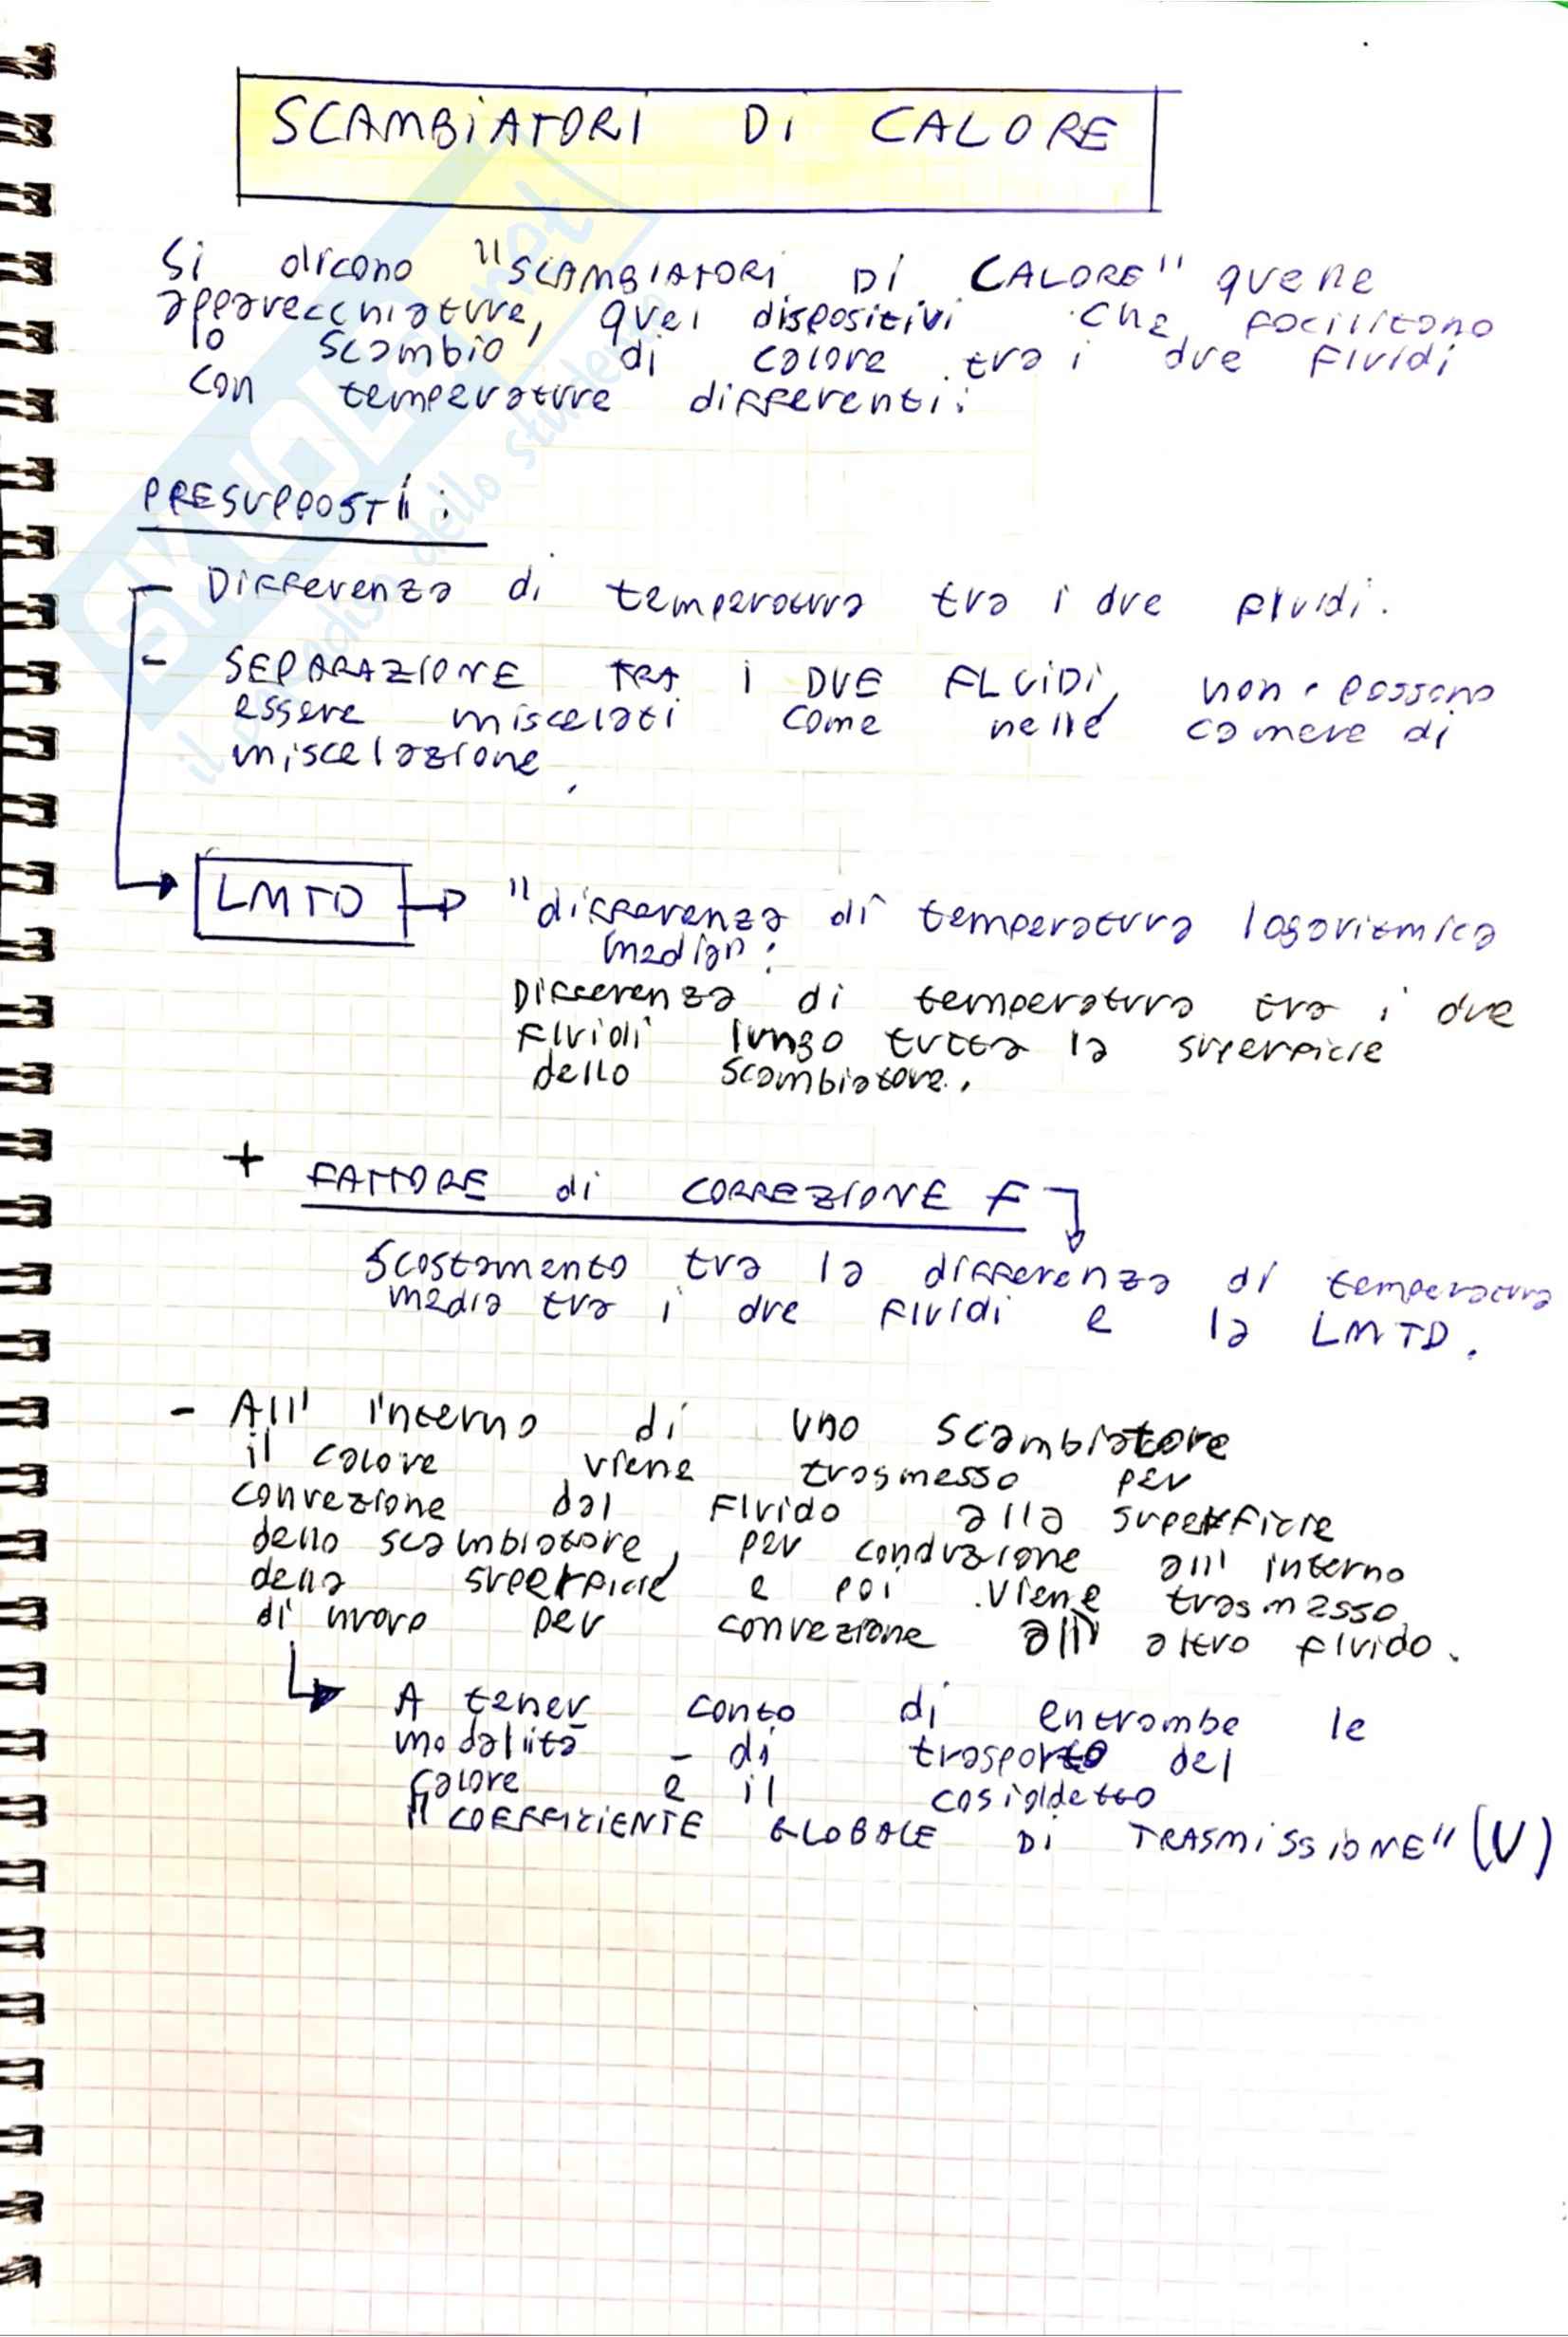 SCAMBIATORI DI CALORE
Si dicono "SCAMBIATORI DI CALORE" quelle
apparecchiature, quei dispositivi che facilitano
lo scambio di calore tra i due fluidi
con temperature differenti.
PRESUPPOSTI:
- Differenza di temperatura tra i due fluidi.
- SEPARAZIONE TRA I DUE FLUIDI, non possono
essere miscelati come nelle camere di
miscelazione,
LMTD → "differenza di temperatura logaritmica
media":
Differenza di temperatura tra i due
fluidi lungo tutta la superficie
dello scambiatore.
+ FATTORE di CORREZIONE F
Scostamento tra la differenza di temperatura
media tra i due fluidi e la LMTD.
- All'interno di uno scambiatore
il calore viene trasmesso per
convezione dal fluido alla superficie
dello scambiatore, per conduzione all'interno
della superficie e poi viene trasmesso
di nuovo per convezione all'altro fluido.
A tener conto di entrambe le
modalità di trasporto del
calore è il cosiddetto
"COEFFICIENTE GLOBALE DI TRASMISSIONE" (U)
SKUOLA.net
il paradiso dello studente